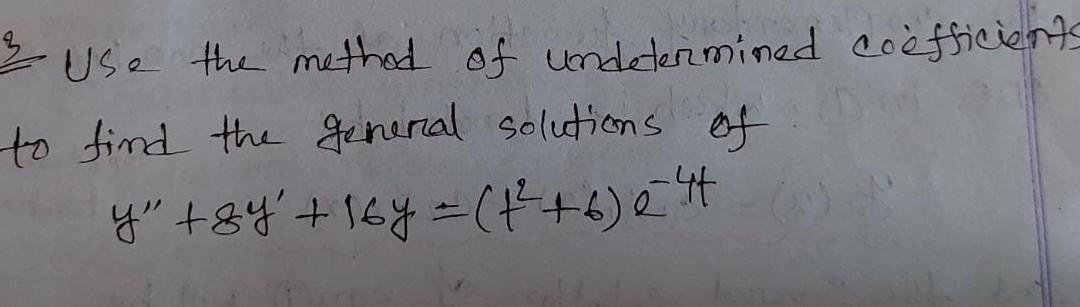 3 Use the method of undetermined coefficients
to find the general solutions of
y" + 8y' + 16y = (t² + 6) e⁻⁴ᵗ